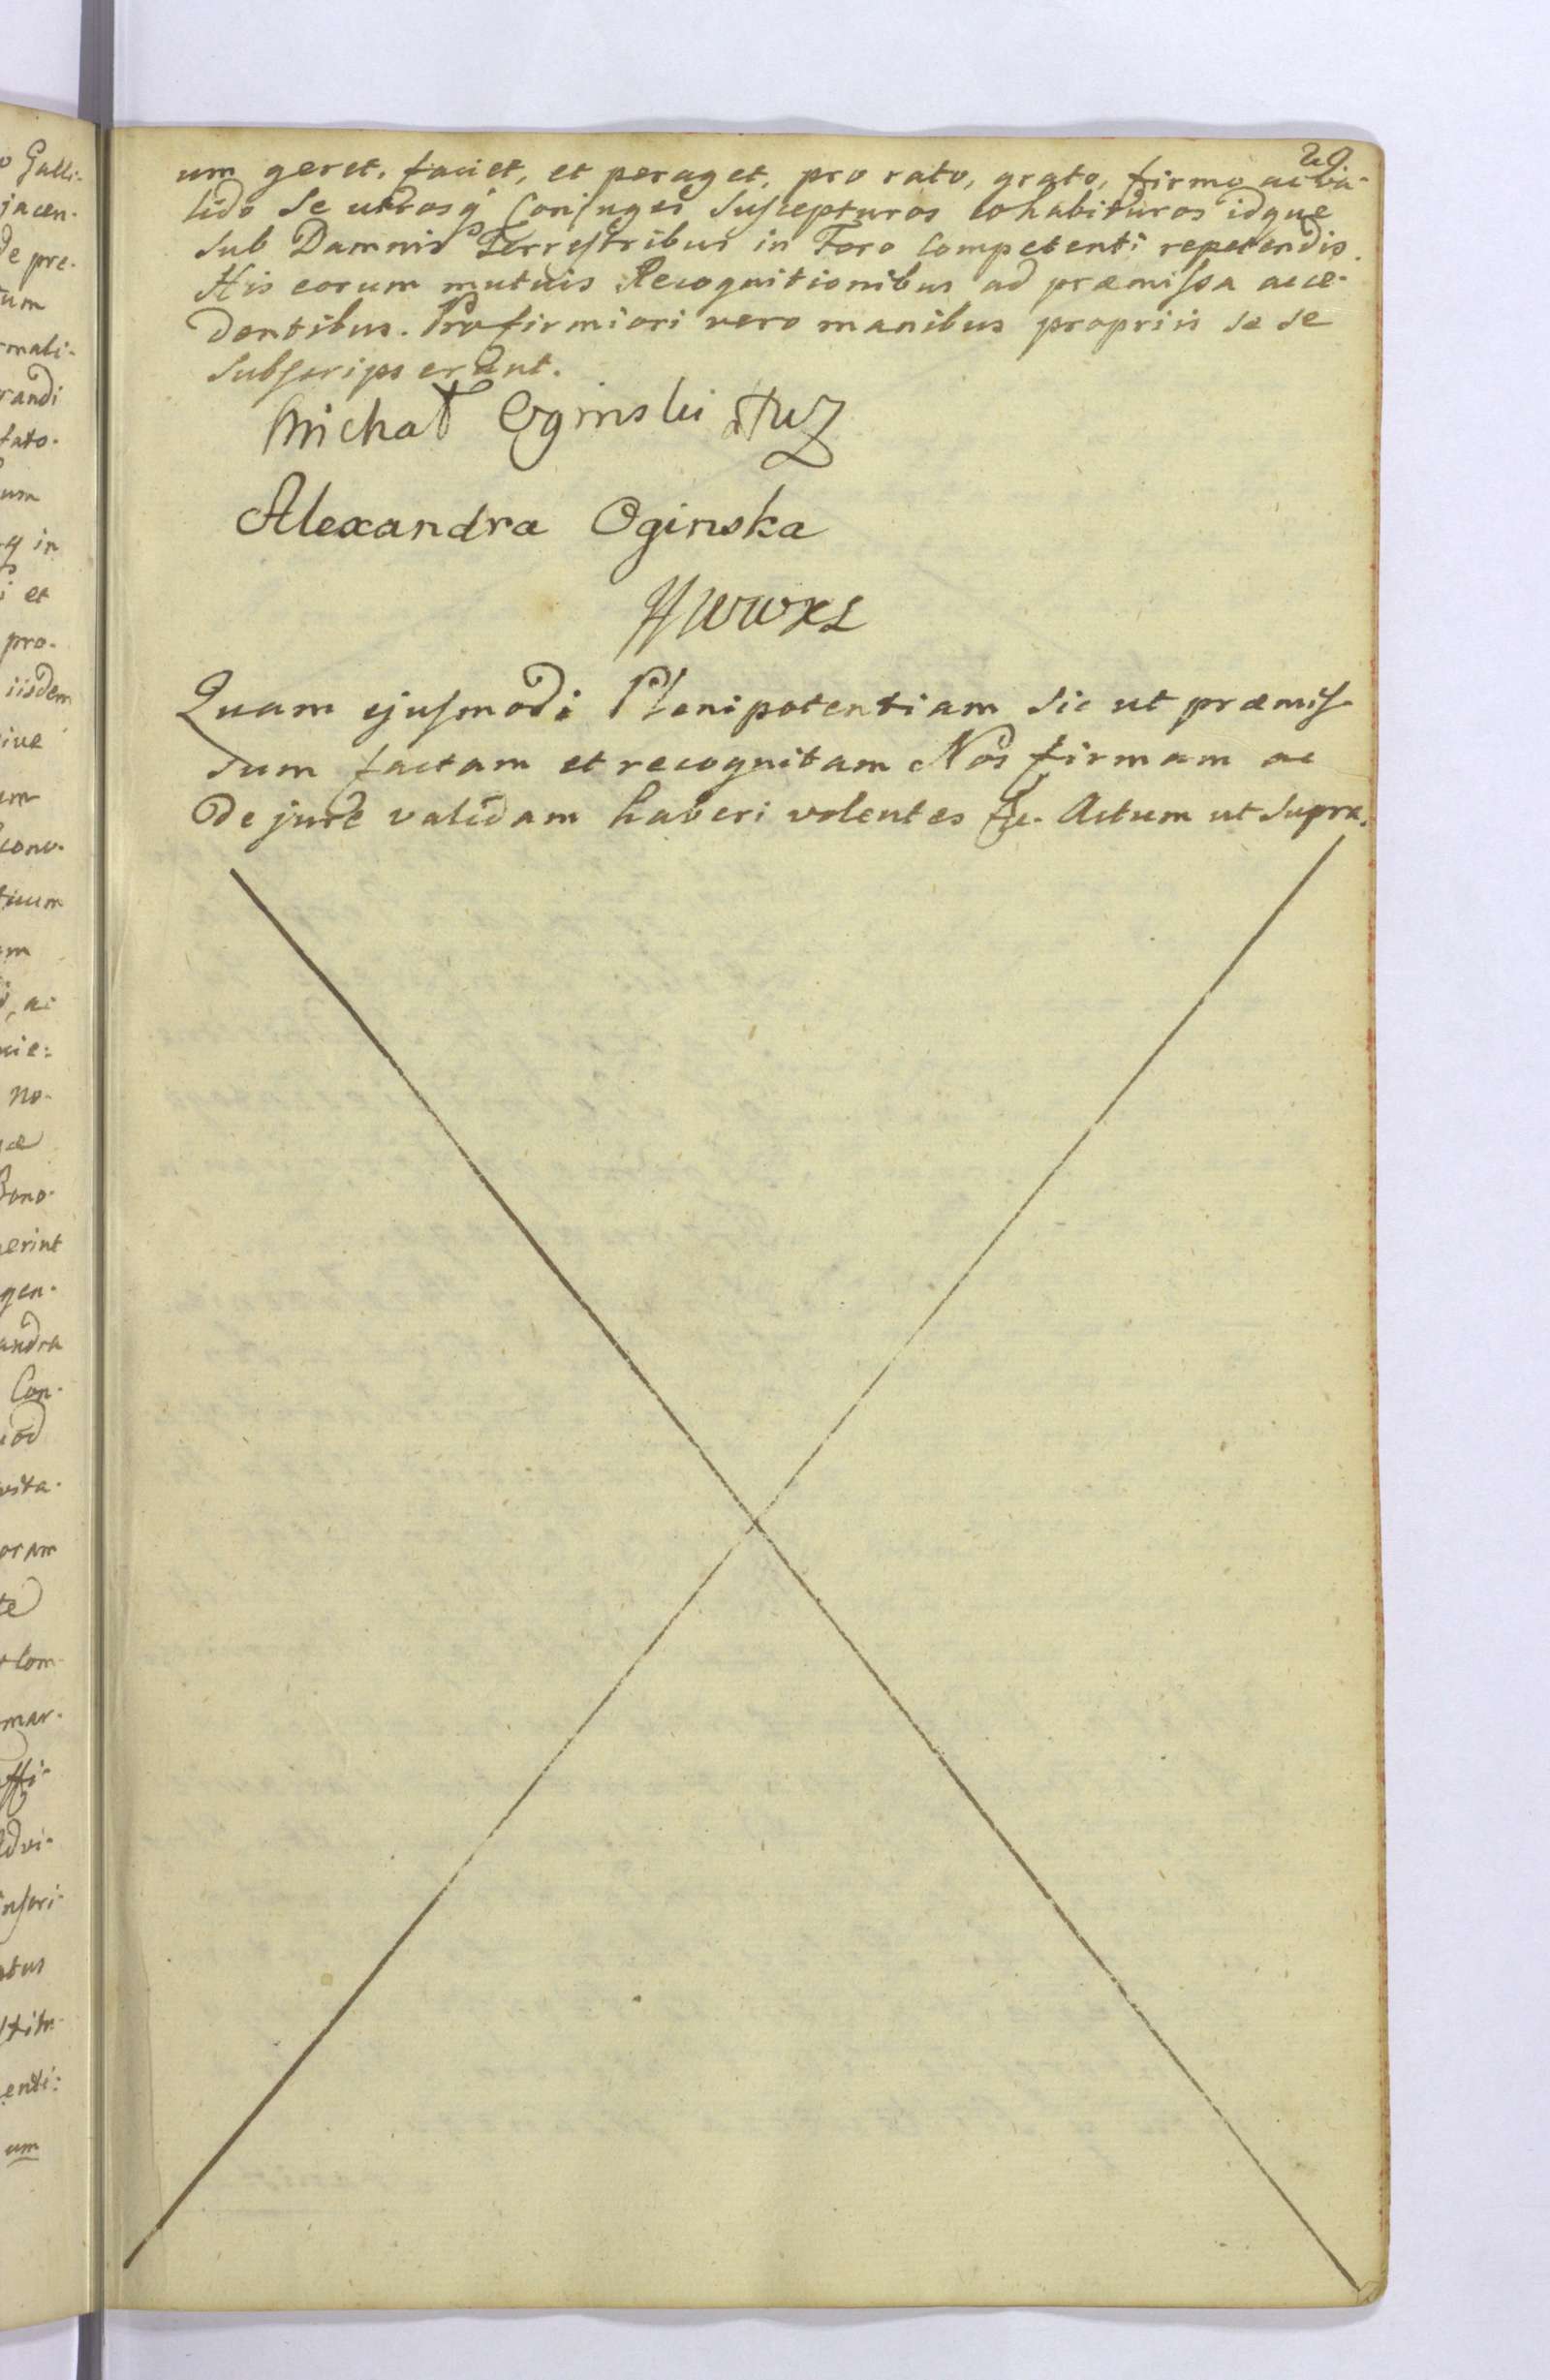 29.
um geret, faciet, et peraget, pro rato, grato, firmo ac va-
lido Se utrosq Conjuges Suscepturos cohabituros idque
Sub Damnis Terrestribus in Foro Competenti repetendis.
His eorum mutuis Recognitionibus ad præmissa acce-
dentibus. Pro firmiori vero manibus propriis se se
Subscripserunt.
Michał Oginski
Alexandra Oginska
HWWXL
Quam ejusmodi Plenipotentiam Sic ut præmis-
sum factam et recognitam Nos firmam ac
de jure validam haberi volentes &c. Actum ut Supra.
Galli-
jacen-
de pre-
tum
mali-
randi
fato-
um
q in
i et
pro-
iisdem
ive
um
conv-
tuum
m
ac
cie:
no-
æ
Bono-
erint
gen-
andra
Con-
od
vita-
oram
te
Com-
mar-
ffi-
dvi-
nseri-
tus
enti:
um